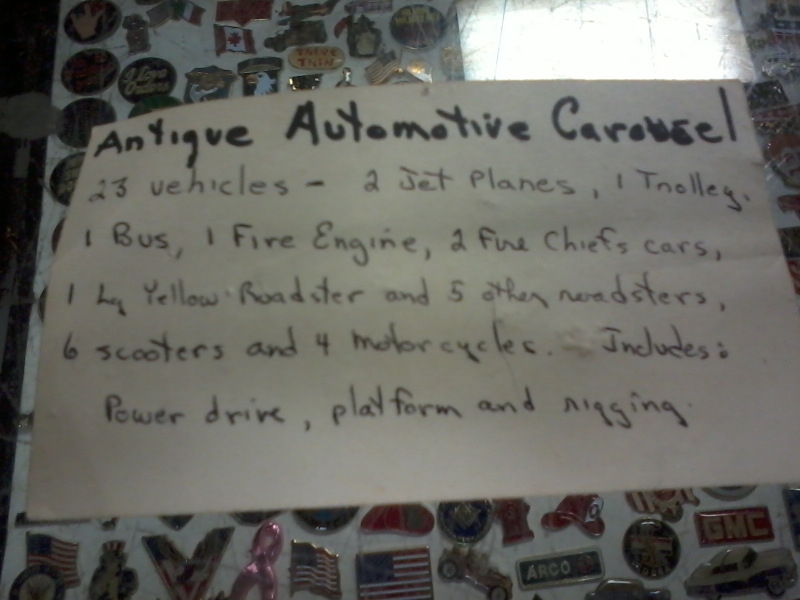 TREVE
Antique Automotive Carousel
23 vehicles - 2 Jet Planes, 1 Trolley.
1 Bus, 1 Fire Engine, 2 Fire Chiefs cars,
1 Lg Yellow Roadster and 5 other roadsters,
6 scooters and 4 motorcycles. - Includes:
Power drive, platform and rigging.
GMC
ARCO